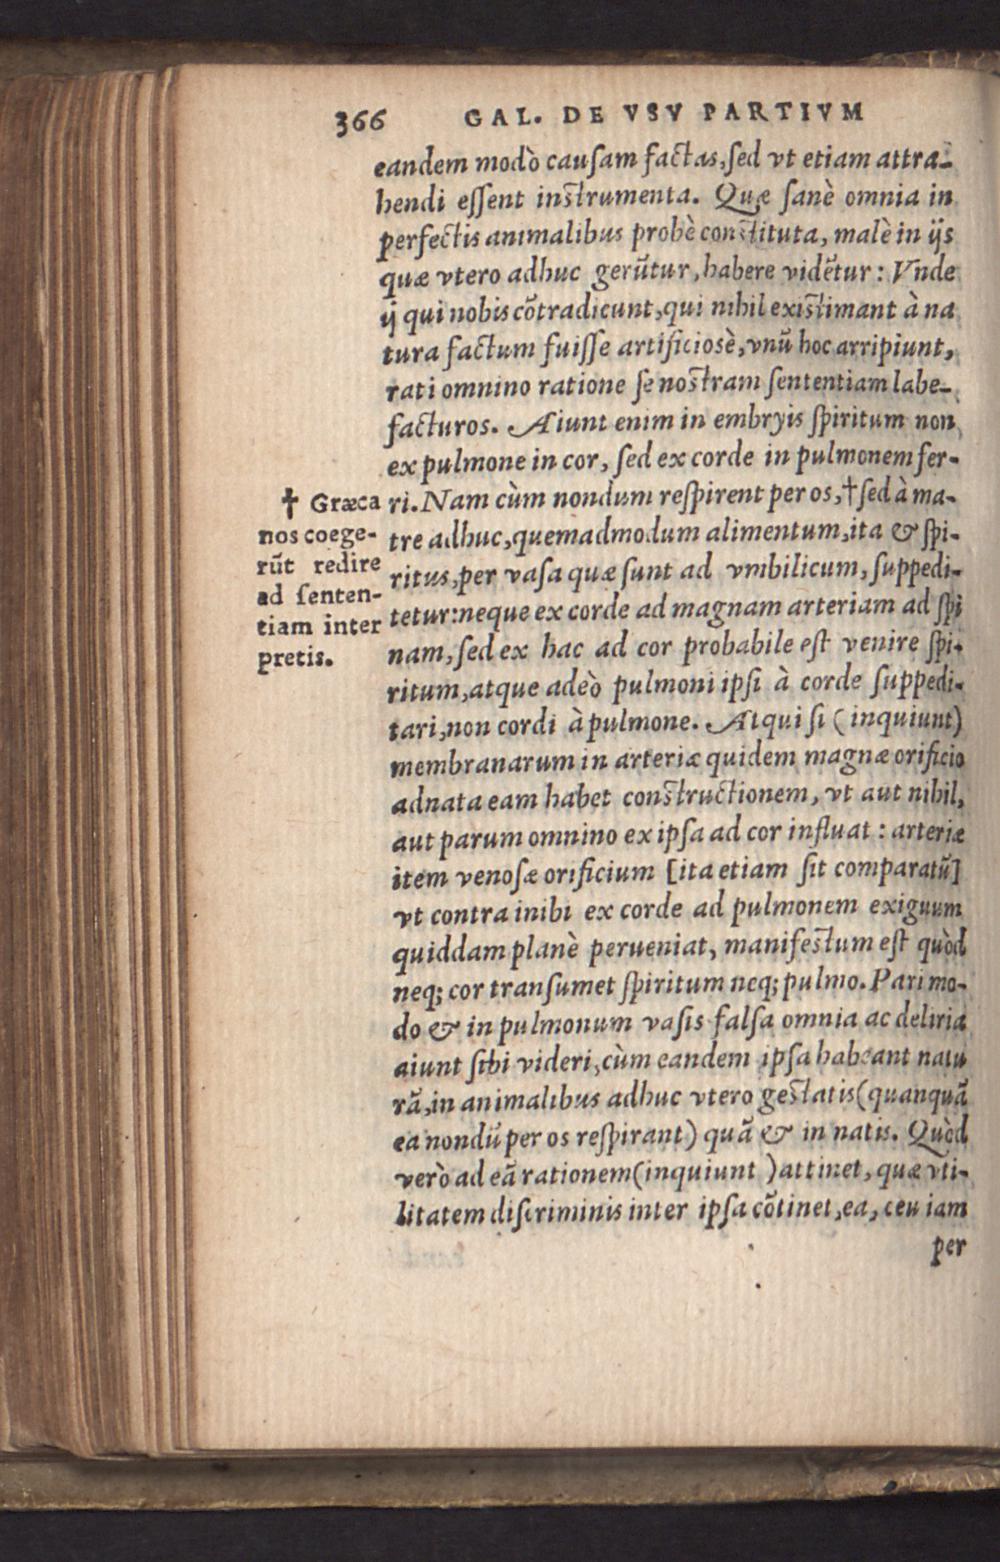 366 GAL. DE VSV PARTIVM
eandem modò cauſam factas, ſed vt etiam attra-
hendi eſſent inſtrumenta. Quæ ſanè omnia in
perfectis animalibus probè conſtituta, malè in ijs
quæ vtero adhuc gerũtur, habere vidẽtur: Vnde
ij qui nobis cõtradicunt, qui nihil exiſtimant à na
tura factum fuiſſe artificioſè, vnũ hoc arripiunt,
rati omnino ratione ſe noſtram ſententiam labe-
facturos. Aiunt enim in embryis ſpiritum non
ex pulmone in cor, ſed ex corde in pulmonem fer-
ri. Nam cùm nondum reſpirent per os, † ſed à ma-
tre adhuc, quemadmodum alimentum, ita & ſpi-
ritus, per vaſa quæ ſunt ad vmbilicum, ſuppedi-
tetur: neque ex corde ad magnam arteriam ad ſpi
nam, ſed ex hac ad cor probabile eſt venire ſpi-
ritum, atque adeò pulmoni ipſi à corde ſuppedi-
tari, non cordi à pulmone. Atqui ſi (inquiunt)
membranarum in arteriæ quidem magnæ orificio
adnata eam habet conſtructionem, vt aut nihil,
aut parum omnino ex ipſa ad cor influat: arteriæ
item venoſæ orificium [ita etiam ſit comparatũ]
vt contra inibi ex corde ad pulmonem exiguum
quiddam planè perueniat, manifeſtum eſt quòd
neq; cor tranſumet ſpiritum neq; pulmo. Pari mo-
do & in pulmonum vaſis falſa omnia ac deliria
aiunt ſibi videri, cùm eandem ipſa habeant natu
rã, in animalibus adhuc vtero geſtatis (quanquã
ea nondũ per os reſpirant) quã & in natis. Quòd
verò ad eã rationem (inquiunt) attinet, quæ vti-
litatem diſcriminis inter ipſa cõtinet, ea, ceu iam
per
† Græca
nos coege-
rũt redire
ad ſenten-
tiam inter
pretis.